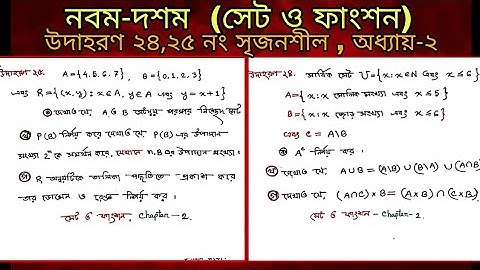 নবম-দশম (সেট ও ফাংশন)
উদাহরণ ২৪,২৫ নং সৃজনশীল , অধ্যায়-২
উদাহরণ ২৫. A={4,5,6,7}, B={0,1,2,3}
এবং R={(x,y): x∈A, y∈A এবং y=x+1}
দেখাও যে, A ও B সেটদ্বয় পরস্পর নিশ্ছেদ সেট
খ P(B) নির্ণয় করে দেখাও যে, P(B) এর উপাদান
সংখ্যা 2ⁿ কে সমর্থন করে, যেখানে n, B এর উপাদান সংখ্যা।
গ R অন্বয়টিকে তালিকা পদ্ধতিতে প্রকাশ করে
তার ডোমেন ও রেঞ্জ নির্ণয় কর।
সেট ও ফাংশন, Chapter-2.
উদাহরণ ২৪. সার্বিক সেট U={x:x∈N এবং x≤6}
A={x:x মৌলিক সংখ্যা এবং x≤5}
B={x:x জোড় সংখ্যা এবং x≤6}
এবং C = A\B
Aᶜ নির্ণয় কর।
খ দেখাও যে, A∪B = (A\B) ∪ (B\A) ∪ (A∩B)
গ দেখাও যে, (A∩C) × B = (A×B) ∩ (C×B).
সেট ও ফাংশন - Chapter-2.